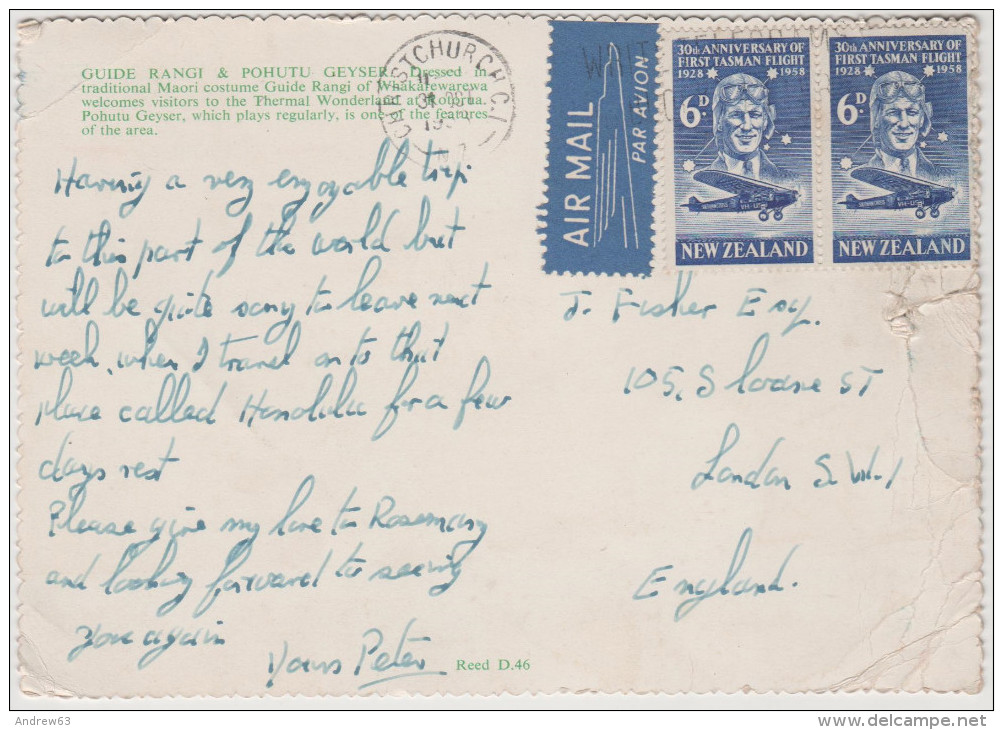 GUIDE RANGI & POHUTU GEYSER. Dressed in
traditional Maori costume Guide Rangi of Whakarewarewa
welcomes visitors to the Thermal Wonderland at Rotorua.
Pohutu Geyser, which plays regularly, is one of the features
of the area.
Having a very enjoyable trip
to this part of the world but
will be quite sorry to leave next
week, when I travel on to that
place called Honolulu for a few
days rest
Please give my love to Rosemary
and looking forward to seeing
you again
Yours Peter
Reed D.46
CHRISTCHURCH C.1
N.Z.
AIR MAIL
PAR AVION
30th ANNIVERSARY OF
FIRST TASMAN FLIGHT
1928 1958
6D
NEW ZEALAND
30th ANNIVERSARY OF
FIRST TASMAN FLIGHT
1928 1958
6D
NEW ZEALAND
J. Fisher Esq.
105, Sloane ST
London S.W.1
England.
Andrew63
delcampe.net